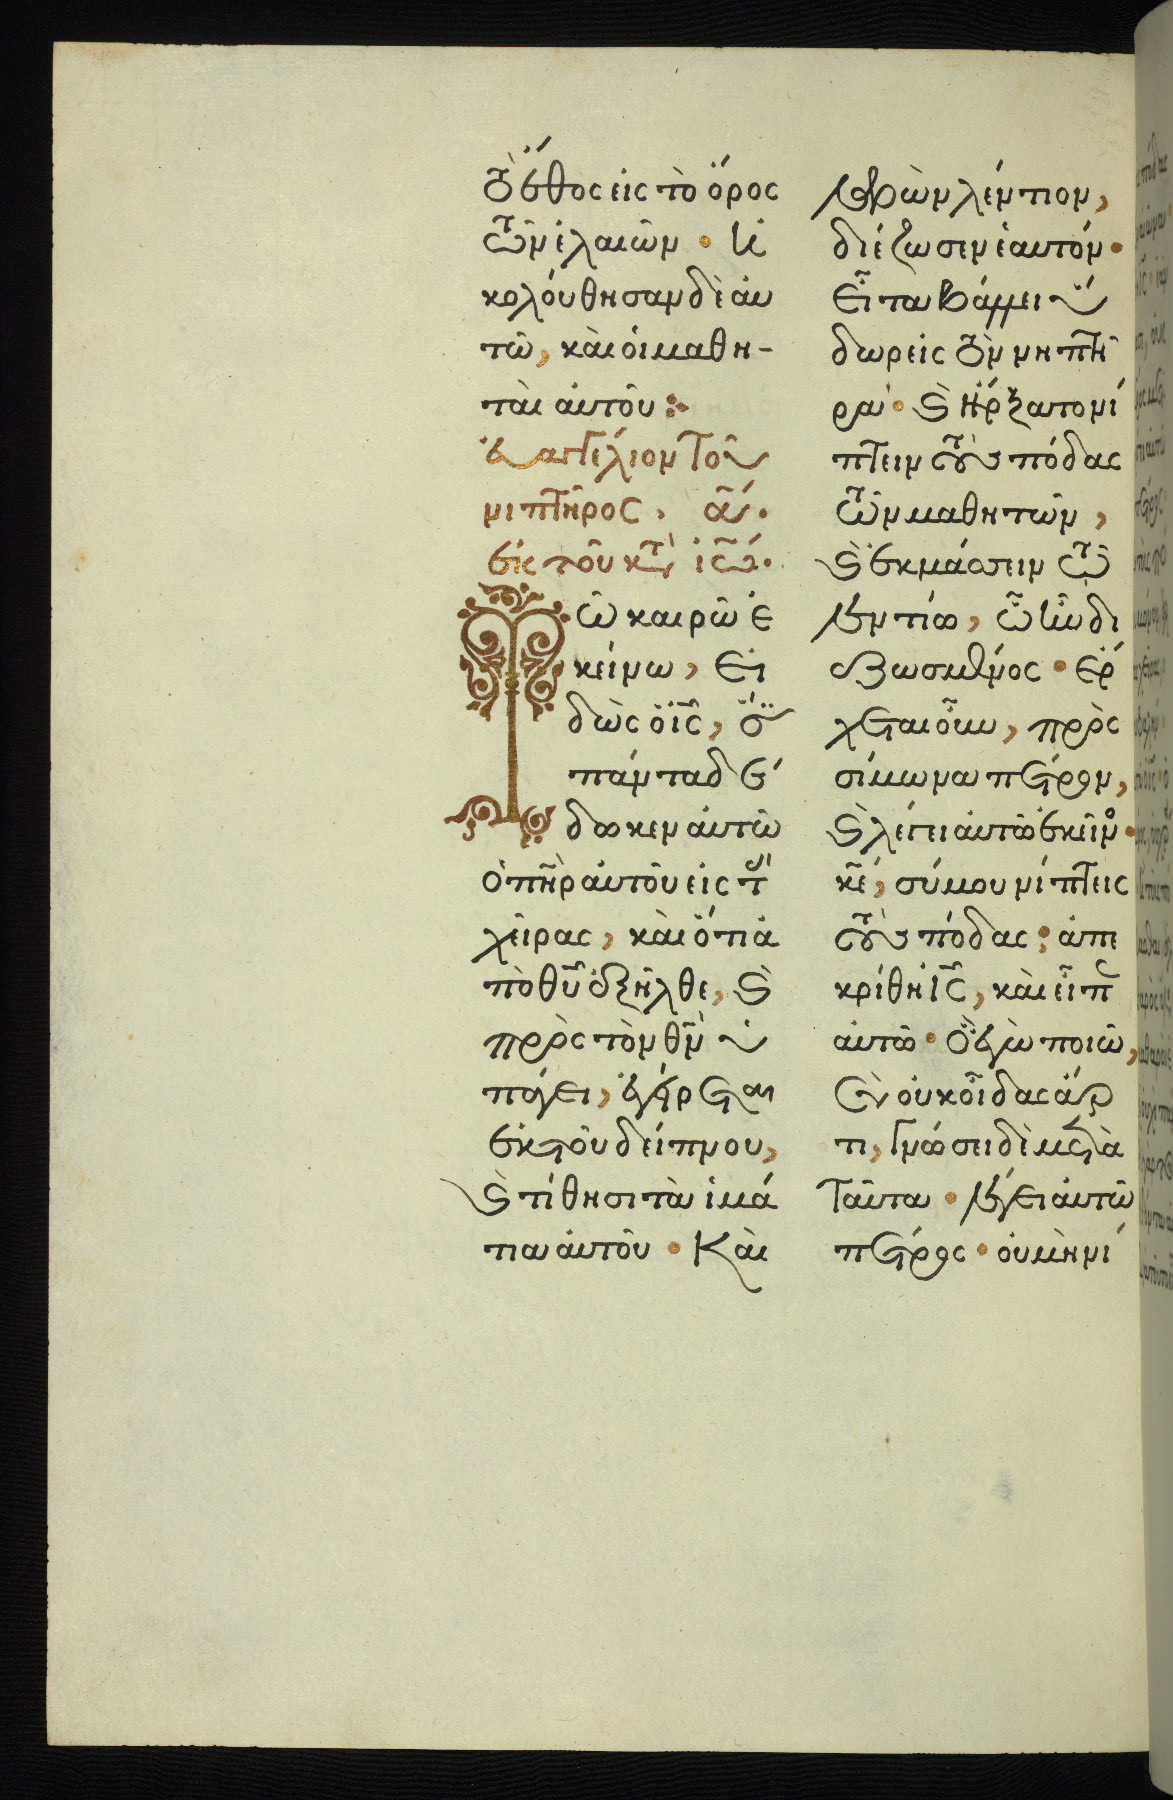 τὸ ἔθος εἰς τὸ ὄρος
τῶν ἐλαιῶν · ἠ
κολούθησαν δὲ αὐ
τῶ, καὶ οἱ μαθη-
ταὶ αὐτοῦ :·
Εὐαγγέλιον τοῦ
νιπτῆρος. α´.
ἐκ τοῦ κατὰ ἰω´.
Τῶ καιρῶ ἐ
κείνω, εἰ
δὼς ὁ ις, ὅτι
πάντα δέ
δωκεν αὐτῶ
ὁ πηρ αὐτοῦ εἰς τὰς
χεῖρας, καὶ ὅτι ἀ
πὸ θυ ἐξῆλθε, καὶ
πρὸς τὸν θν ὑ
πάγει, ἐγείρεται
ἐκ τοῦ δείπνου,
καὶ τίθησι τὰ ἱμά
τια αὐτοῦ · Καὶ
λαβὼν λέντιον,
διέζωσεν ἑαυτόν ·
Εἶτα βάλλει ὕ
δωρ εἰς τὸν νιπτῆ
ρα · καὶ ἤρξατο νί
πτειν τοὺς πόδας
τῶν μαθητῶν,
καὶ ἐκμάσσειν τῶ
λεντίω, ὧ ἦν δι
εζωσμένος · ἔρ
χεται οὖν, πρὸς
σίμωνα πέτρον,
καὶ λέγει αὐτῶ ἐκεῖνος ·
κε, σύ μου νίπτεις
τοὺς πόδας; ἀπε
κρίθη ις, καὶ εἶπεν
αὐτῶ · Ὃ ἐγὼ ποιῶ,
σὺ οὐκ οἶδας ἄρ
τι, γνώσει δὲ μετὰ
ταῦτα · λέγει αὐτῶ
πέτρος · οὐ μὴ νί